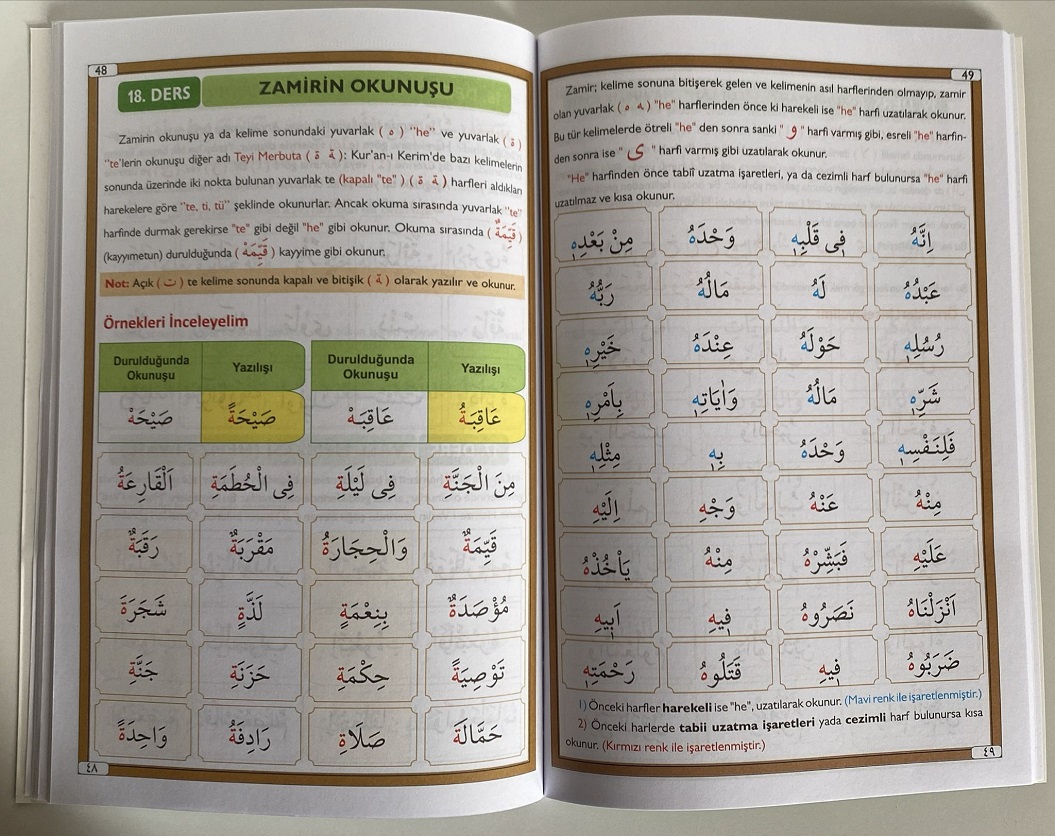 48
18. DERS
ZAMİRİN OKUNUŞU
Zamirin okunuşu ya da kelime sonundaki yuvarlak ( ه ) "he" ve yuvarlak ( ة )
"te'lerin okunuşu diğer adı Teyi Merbuta ( ة ـة ): Kur'an-ı Kerim'de bazı kelimelerin
sonunda üzerinde iki nokta bulunan yuvarlak te (kapalı "te" ) ( ة ـة ) harfleri aldıkları
harekelere göre "te, ti, tü" şeklinde okunurlar. Ancak okuma sırasında yuvarlak "te"
harfinde durmak gerekirse "te" gibi değil "he" gibi okunur. Okuma sırasında ( قَيِّمَةٌ )
(kayyımetun) durulduğunda ( قَيِّمَهْ ) kayyime gibi okunur.
Not: Açık ( ت ) te kelime sonunda kapalı ve bitişik ( ـة ) olarak yazılır ve okunur.
Örnekleri İnceleyelim
Durulduğunda Okunuşu Yazılışı Durulduğunda Okunuşu Yazılışı
عَاقِبَةُ عَاقِبَهْ صَيْحَةً صَيْحَهْ
مِنَ الْجَنَّةِ فِى لَيْلَةِ فِى الْحُطَمَةِ اَلْقَارِعَةُ
قَيِّمَةٌ وَالْحِجَارَةُ مَقْرَبَةٌ رَقَبَةٌ
مُؤْصَدَةٌ بِنِعْمَةٍ لَذَّةٍ شَجَرَةَ
تَوْصِيَةً حِكْمَةِ حَزَنَةِ جَنَّةِ
حَمَّالَةَ صَلَاةِ رَادِفَةُ وَاحِدَةً
٤٨
49
Zamir; kelime sonuna bitişerek gelen ve kelimenin asıl harflerinden olmayıp, zamir
olan yuvarlak ( ه ـه ) "he" harflerinden önce ki harekeli ise "he" harfi uzatılarak okunur.
Bu tür kelimelerde ötreli "he" den sonra sanki " و " harfi varmış gibi, esreli "he" harfin-
den sonra ise " ى " harfi varmış gibi uzatılarak okunur.
"He" harfinden önce tabiî uzatma işaretleri, ya da cezimli harf bulunursa "he" harfi
uzatılmaz ve kısa okunur.
اِنَّهُ فِى قَلْبِهٖ وَحْدَهُ مِنْ بَعْدِهٖ
عَبْدُهُ لَهُ مَالُهُ رَبُّهُ
رُسُلِهٖ حَوْلَهُ عِنْدَهُ خَيْرِهٖ
شَرِّهٖ مَالُهُ وَاٰيَاتِهٖ بِاَمْرِهٖ
فَلِنَفْسِهٖ وَحْدَهُ بِهٖ مِثْلِهٖ
مِنْهُ عَنْهُ وَجْهِ اِلَيْهِ
عَلَيْهِ فَبَشِّرْهُ مِنْهُ يَاْخُذْهُ
اَنْزَلْنَاهُ نَصَرُوهُ فٖيهِ اَبٖيهِ
ضَرَبُوهُ فٖيهِ قَتَلُوهُ رَحْمَتِهٖ
1) Önceki harfler harekeli ise "he", uzatılarak okunur. (Mavi renk ile işaretlenmiştir.)
2) Önceki harlerde tabii uzatma işaretleri yada cezimli harf bulunursa kısa
okunur. (Kırmızı renk ile işaretlenmiştir.)
٤٩